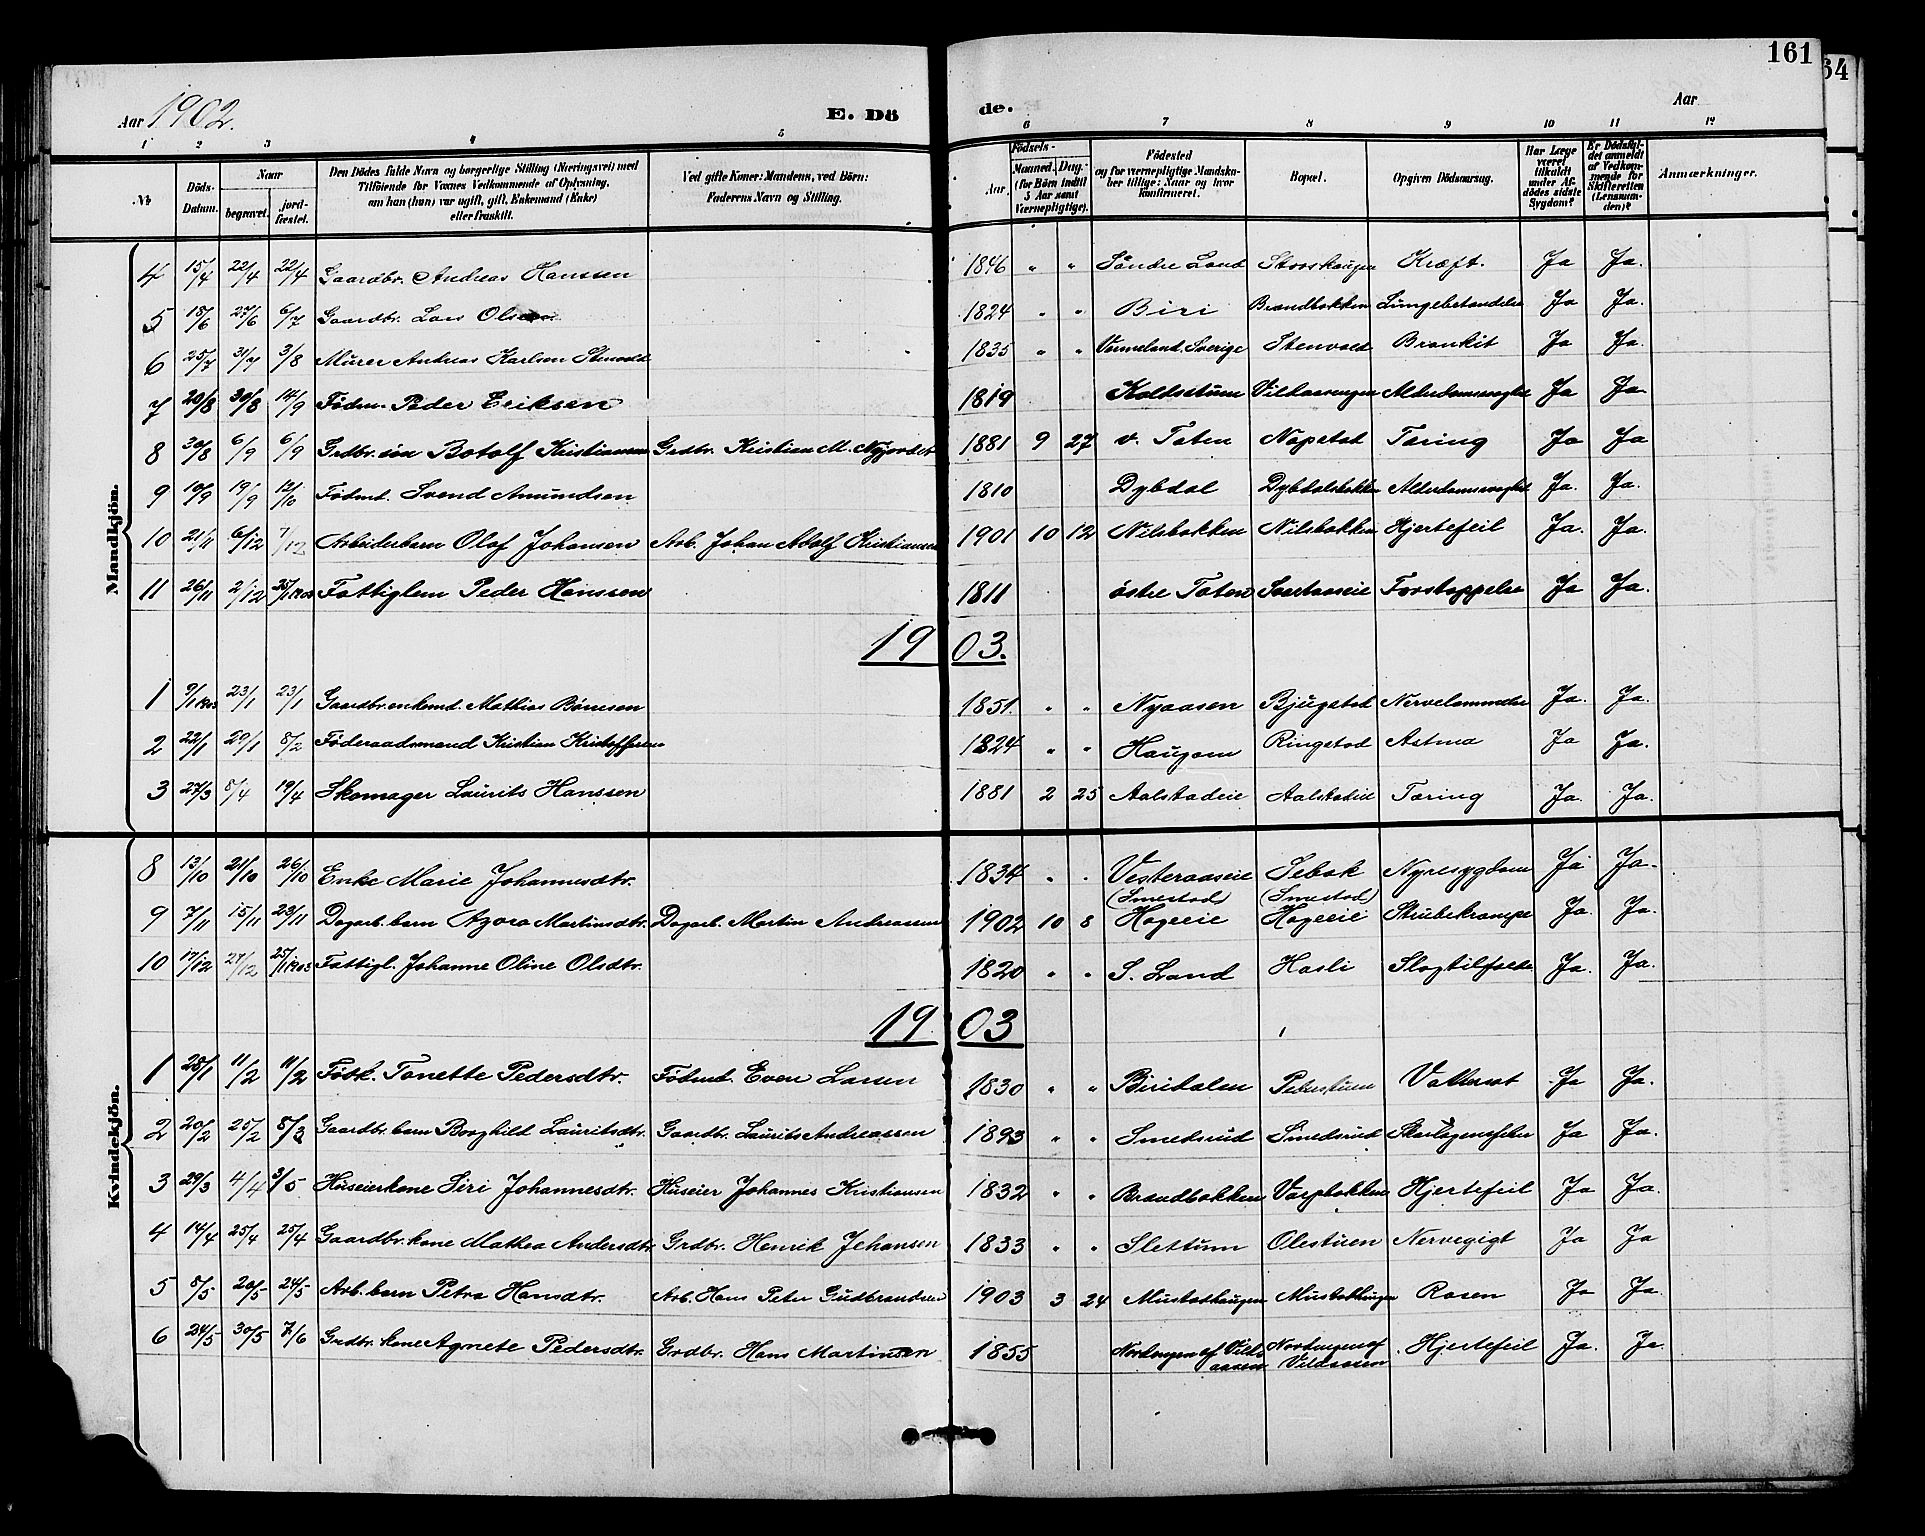 161
64
Aar 1902.
E. Dö de.
Aar
1 2 3 4 5 6 7 8 9 10 11 12
No.
Döds-Datum.
Naar
begravet.
jord-fæstet.
Den Dödes fulde Navn og borgerlige Stilling (Næringsvei) med Tilföiende for Voxnes Vedkommende af Oplysning, om han (hun) var ugift, gift, Enkemand (Enke) eller fraskilt.
Ved gifte Koner: Mandens, ved Börn: Faderens Navn og Stilling.
Födsels-
Aar.
Maaned. Dag.
(for Börn indtil 5 Aar samt Værnepligtige).
Födested og for værnepligtige Mandskaber tillige: Naar og hvor konfirmeret.
Bopæl.
Opgiven Dödsaarsag.
Har Læge været tilkaldt under Afdödes sidste Sygdom?
Er Dödsfaldet anmeldt af Vedkommende for Skifteretten (Lensmanden)?
Anmærkninger.
Mandkjön.
4 15/4 22/4 22/4 Gaardbr. Andreas Hanssen 1846 " " Söndre Land Storshaugen Kræft. Ja Ja.
5 18/6 27/6 6/7 Gaardbr. Lars Olsen 1824 " " Biri Brandbakken Lungebetændelse Ja Ja.
6 25/7 31/7 3/8 Murer Andreas Karlsen Stenvold 1835 " " Vermeland, Sverige Stenvold Bronkit Ja Ja.
7 20/8 30/8 14/9 Födm. Peder Eriksen 1819 Koldstuen Alderdomssvaghed Ja Ja
8 30/8 6/9 6/9 Grdbr. sön Botolf Kristiansen Grdbr. Kristian M. 1881 9 27 v. Toten Nøpstad Tæring Ja Ja
9 10/9 19/9 12/10 Födmd. Svend Amundsen 1810 Dybdal Dybdalsbakken Alderdomssvaghed Ja. Ja.
10 21/11 6/12 7/12 Arbeiderbarn Olaf Johansen Arb. Johan Adolf Kristiansen 1901 10 12 Nilsbakken Nilsbakken Hjertefeil Ja. Ja.
11 26/11 2/12 25/1 1903 Fattiglem Peder Hanssen 1811 östre Toten Svartaaseie Forstoppelse Ja Ja.
1903.
1 9/1 1903 23/1 23/1 Gaardbr. enkemd. Mathias Börresen 1851. " " Nyaasen Bjugstad Ja. Ja.
2 22/1 29/1 8/2 Föderaadsmand Kristian Kristoffersen 1824 " " Haugom Ringstad Astma Ja Ja.
3 27/3 8/4 19/4 Skomager Laurits Hanssen 1881 2 25 Aalstadeie Aalstadeie Tæring Ja. Ja.
Kvindekjön.
8 13/10 21/10 26/10 Enke Marie Johannesdtr. 1834 " " Vesteraaseie Sebak Nyresygdom Ja Ja.
(Smestad) (Smestad)
9 7/11 15/11 23/11 Dagarb. barn Agora Martinsdtr. Dagarb. Martin Andreassen 1902 10 8 Hageeie Hageeie Strubekrampe Ja. Ja.
10 17/12 27/12 25/1 1903 Fattigl. Johanne Oline Olsdtr. 1820 " " S. Land Hasli Slagtilfælde Ja. Ja.
1903
1 28/1 11/2 11/2 Födk. Tonette Pedersdtr. Födmd. Even Larsen 1830 " " Biridalen Peterstuen Vattersot Ja Ja.
2 20/2 25/2 8/3 Gaardbr. barn Borghild Lauritsdtr. Gaardbr. Laurits Andreassen 1893 " " Smedsrud Smedsrud Skarlagensfeber Ja Ja.
3 29/3 4/4 3/5 Huseierkone Siri Johannesdtr. Huseier Johannes Kristiansen 1832 " " Brandbakken Varpbakken Hjertefeil Ja Ja.
4 14/4 25/4 25/4 Gaardbr. kone Mathea Andersdtr. Grdbr. Henrik Johansen 1833 " " Slettum Olestuen Nervegigt Ja Ja
5 8/5 20/5 24/5 Arb. barn Petra Hansdtr. Arb. Hans Peter Gudbrandsen 1903 3 24 Mustadhaugen Mustadhaugen Rosen Ja Ja.
6 24/5 30/5 7/6 Grdbr. kone Agnete Pedersdtr. Grdbr. Hans Martinsen 1855 Nordengen af Vildaasen Nordengen af Vildaasen Hjertefeil Ja. Ja.